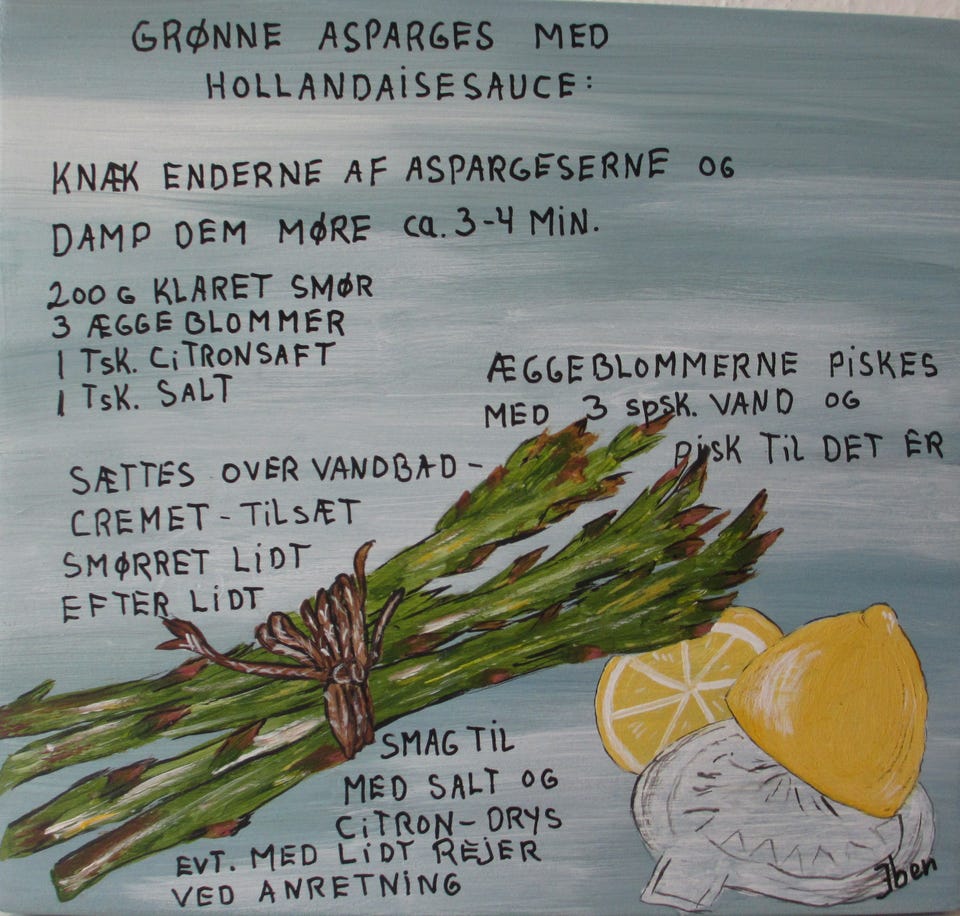 GRØNNE ASPARGES MED
HOLLANDAISESAUCE:
KNÆK ENDERNE AF ASPARGESERNE OG
DAMP DEM MØRE ca. 3-4 MIN.
200 G KLARET SMØR
3 ÆGGEBLOMMER
1 TSK. CITRONSAFT
1 TSK. SALT
ÆGGEBLOMMERNE PISKES
MED 3 spsk. VAND OG
PISK TIL DET ER
SÆTTES OVER VANDBAD-
CREMET - TILSÆT
SMØRRET LIDT
EFTER LIDT
SMAG TIL
MED SALT OG
CITRON- DRYS
EVT. MED LIDT REJER
VED ANRETNING
Iben